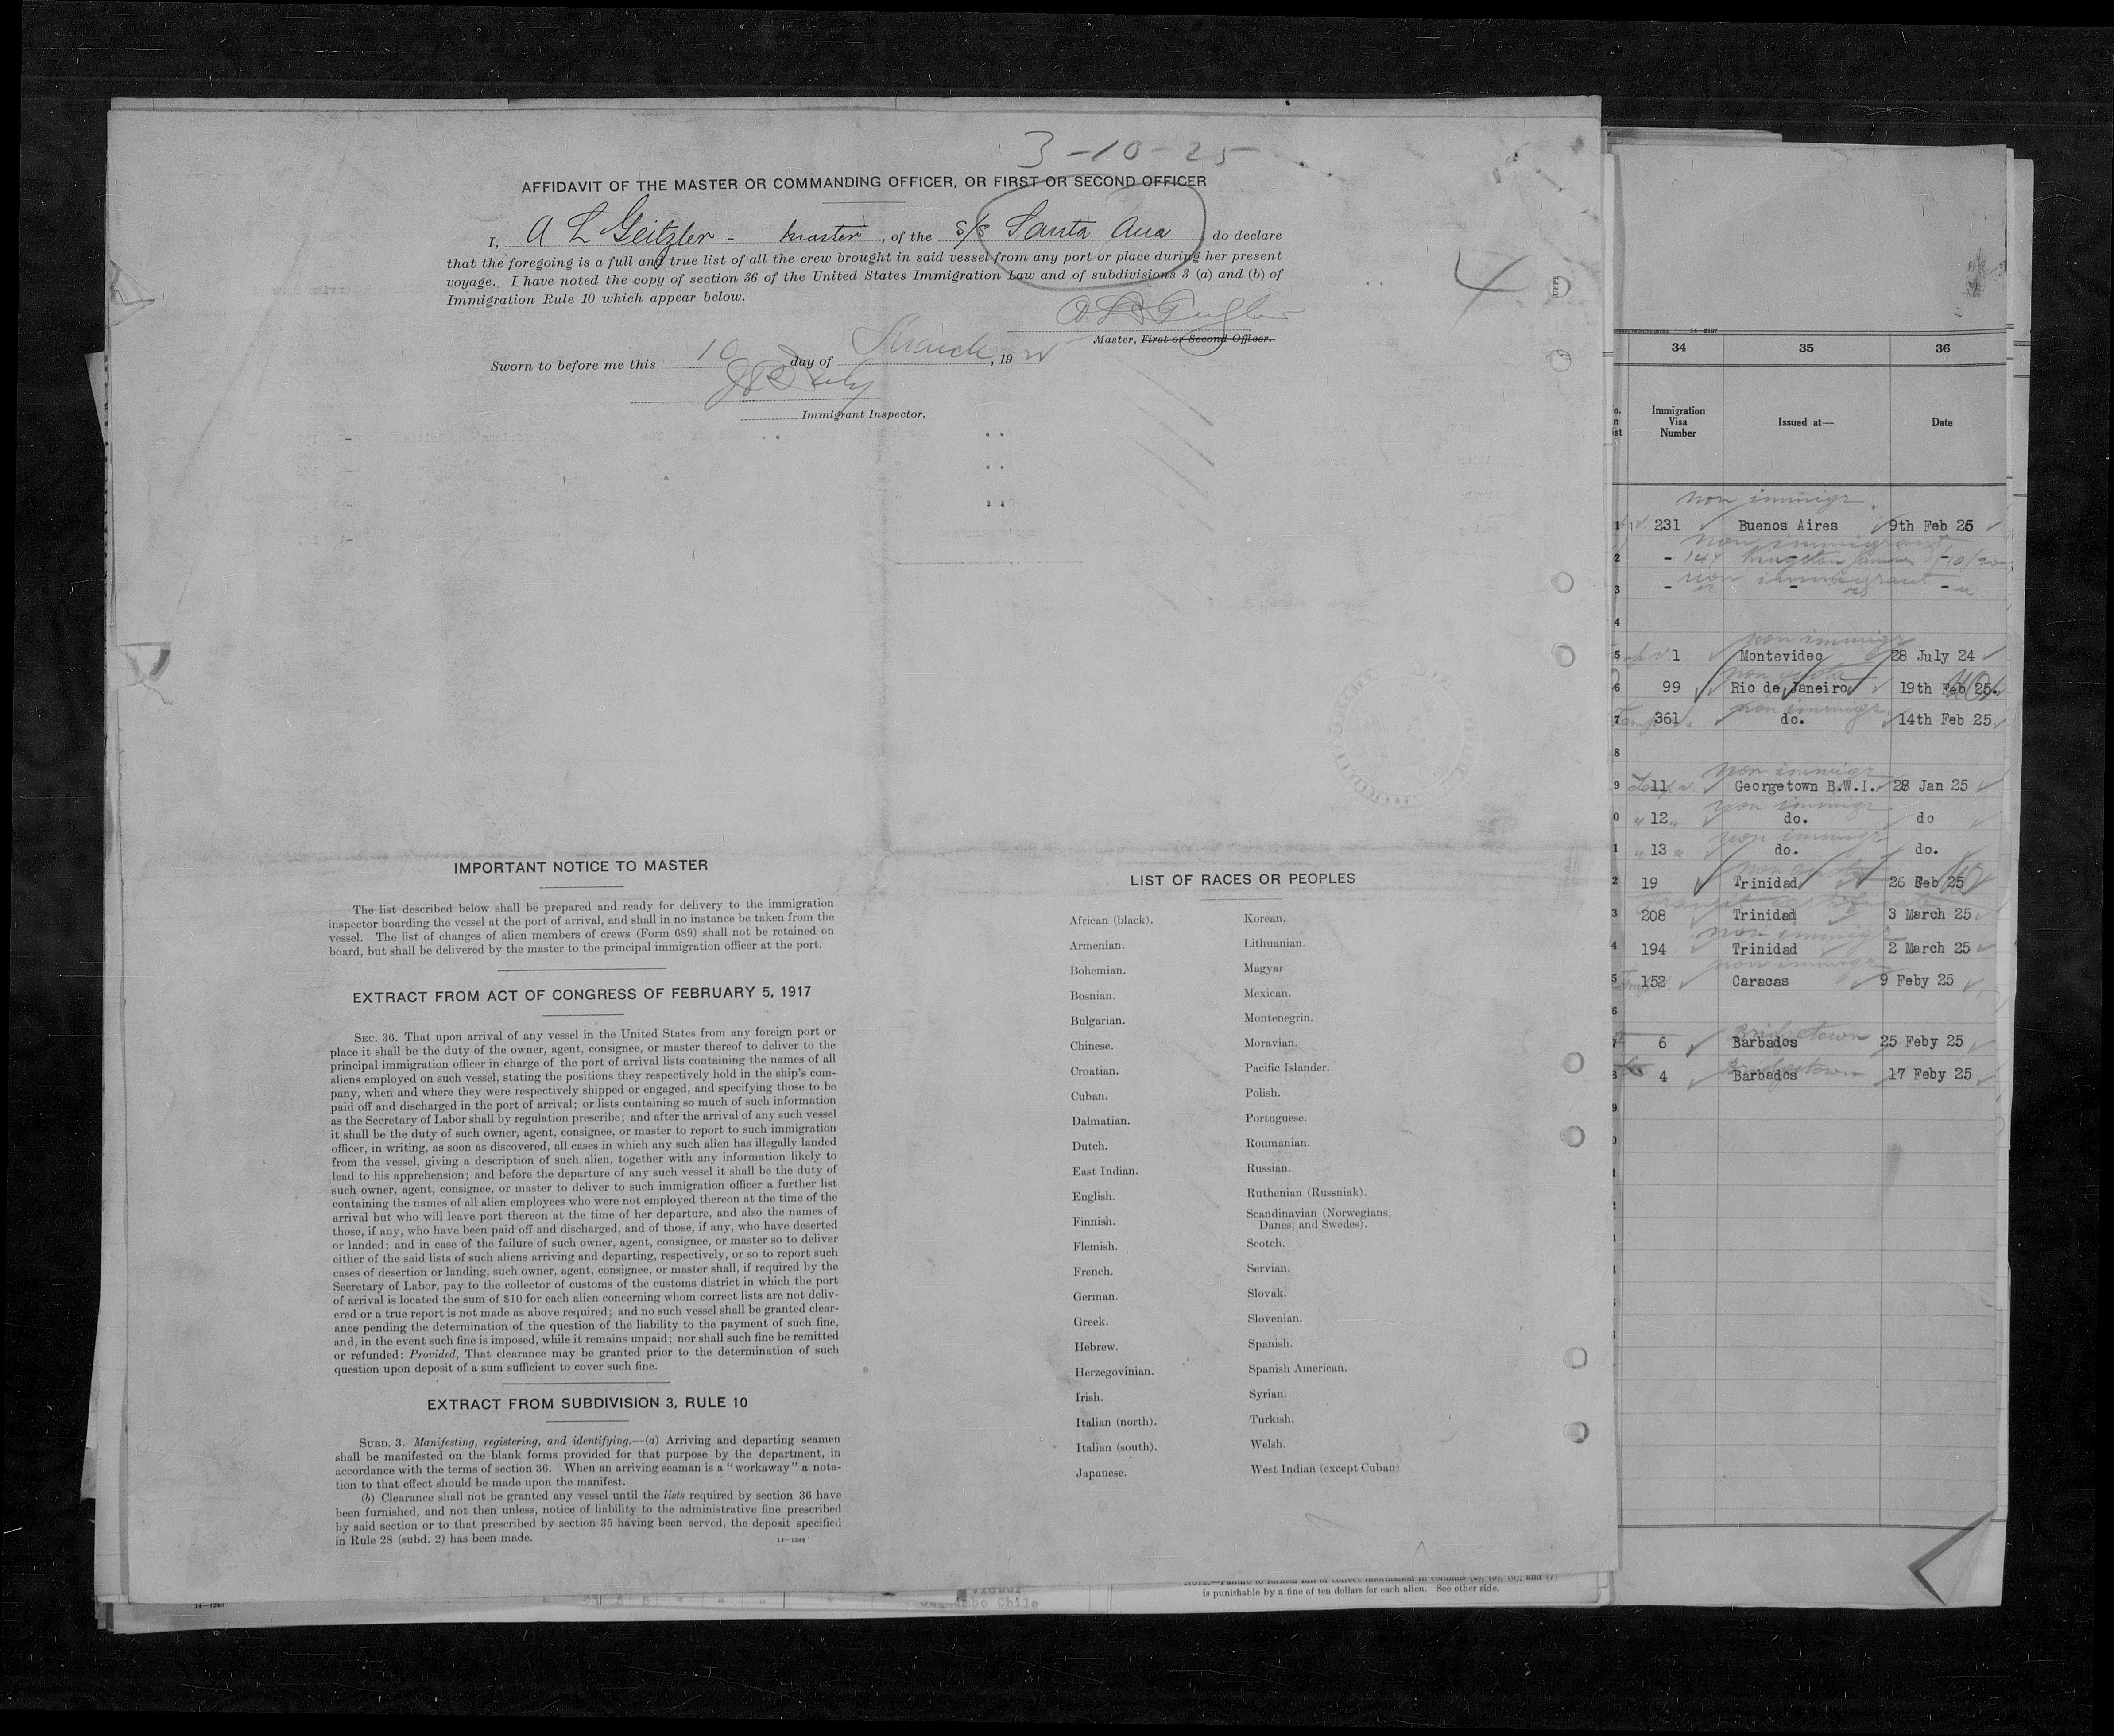 3-10-25
AFFIDAVIT OF THE MASTER OR COMMANDING OFFICER, OR FIRST OR SECOND OFFICER
I, A L Geitzler - master, of the s/s Santa Ana do declare
that the foregoing is a full and true list of all the crew brought in said vessel from any port or place during her present
voyage. I have noted the copy of section 36 of the United States Immigration Law and of subdivisions 3 (a) and (b) of
Immigration Rule 10 which appear below.
Master, First or Second Officer.
Sworn to before me this 10 day of March, 19
Immigrant Inspector.
IMPORTANT NOTICE TO MASTER
The list described below shall be prepared and ready for delivery to the immigration
inspector boarding the vessel at the port of arrival, and shall in no instance be taken from the
vessel. The list of changes of alien members of crews (Form 689) shall not be retained on
board, but shall be delivered by the master to the principal immigration officer at the port.
EXTRACT FROM ACT OF CONGRESS OF FEBRUARY 5, 1917
SEC. 36. That upon arrival of any vessel in the United States from any foreign port or
place it shall be the duty of the owner, agent, consignee, or master thereof to deliver to the
principal immigration officer in charge of the port of arrival lists containing the names of all
aliens employed on such vessel, stating the positions they respectively hold in the ship's com-
pany, when and where they were respectively shipped or engaged, and specifying those to be
paid off and discharged in the port of arrival; or lists containing so much of such information
as the Secretary of Labor shall by regulation prescribe; and after the arrival of any such vessel
it shall be the duty of such owner, agent, consignee, or master to report to such immigration
officer, in writing, as soon as discovered, all cases in which any such alien has illegally landed
from the vessel, giving a description of such alien, together with any information likely to
lead to his apprehension; and before the departure of any such vessel it shall be the duty of
such owner, agent, consignee, or master to deliver to such immigration officer a further list
containing the names of all alien employees who were not employed thereon at the time of the
arrival but who will leave port thereon at the time of her departure, and also the names of
those, if any, who have been paid off and discharged, and of those, if any, who have deserted
or landed; and in case of the failure of such owner, agent, consignee, or master so to deliver
either of the said lists of such aliens arriving and departing, respectively, or so to report such
cases of desertion or landing, such owner, agent, consignee, or master shall, if required by the
Secretary of Labor, pay to the collector of customs of the customs district in which the port
of arrival is located the sum of $10 for each alien concerning whom correct lists are not deliv-
ered or a true report is not made as above required; and no such vessel shall be granted clear-
ance pending the determination of the question of the liability to the payment of such fine,
and, in the event such fine is imposed, while it remains unpaid; nor shall such fine be remitted
or refunded: Provided, That clearance may be granted prior to the determination of such
question upon deposit of a sum sufficient to cover such fine.
EXTRACT FROM SUBDIVISION 3, RULE 10
SUBD. 3. Manifesting, registering, and identifying.—(a) Arriving and departing seamen
shall be manifested on the blank forms provided for that purpose by the department, in
accordance with the terms of section 36. When an arriving seaman is a "workaway" a nota-
tion to that effect should be made upon the manifest.
(b) Clearance shall not be granted any vessel until the lists required by section 36 have
been furnished, and not then unless, notice of liability to the administrative fine prescribed
by said section or to that prescribed by section 35 having been served, the deposit specified
in Rule 28 (subd. 2) has been made.
14—1240
LIST OF RACES OR PEOPLES
African (black).
Armenian.
Bohemian.
Bosnian.
Bulgarian.
Chinese.
Croatian.
Cuban.
Dalmatian.
Dutch.
East Indian.
English.
Finnish.
Flemish.
French.
German.
Greek.
Hebrew.
Herzegovinian.
Irish.
Italian (north).
Italian (south).
Japanese.
Korean.
Lithuanian.
Magyar
Mexican.
Montenegrin.
Moravian.
Pacific Islander.
Polish.
Portuguese.
Roumanian.
Russian.
Ruthenian (Russniak).
Scandinavian (Norwegians,
Danes, and Swedes).
Scotch.
Servian.
Slovak.
Slovenian.
Spanish.
Spanish American.
Syrian.
Turkish.
Welsh.
West Indian (except Cuban)
14—1240
Chile
is punishable by a fine of ten dollars for each alien. See other side.
34 35 36
Immigration Visa Number Issued at— Date
non immigr
231 Buenos Aires 9th Feb 25
non immigrant
2 - 147 Kingston
non immigrant
3 - - -
4
non immigr
5 1 Montevideo 28 July 24
non quota
6 99 Rio de Janeiro 19th Feb 25.
non immigr
7 361 do. 14th Feb 25
8
non immigr
9 11 Georgetown B.W.I. 28 Jan 25
non immigr
0 12 do. do
non immigr
1 13 do. do.
2 19 Trinidad 26 Feb 25
3 208 Trinidad 3 March 25
non immig
4 194 Trinidad 2 March 25
non immigr
5 152 Caracas 9 Feby 25
6
Bridgetown
7 6 Barbados 25 Feby 25
Bridgetown
8 4 Barbados 17 Feby 25
9